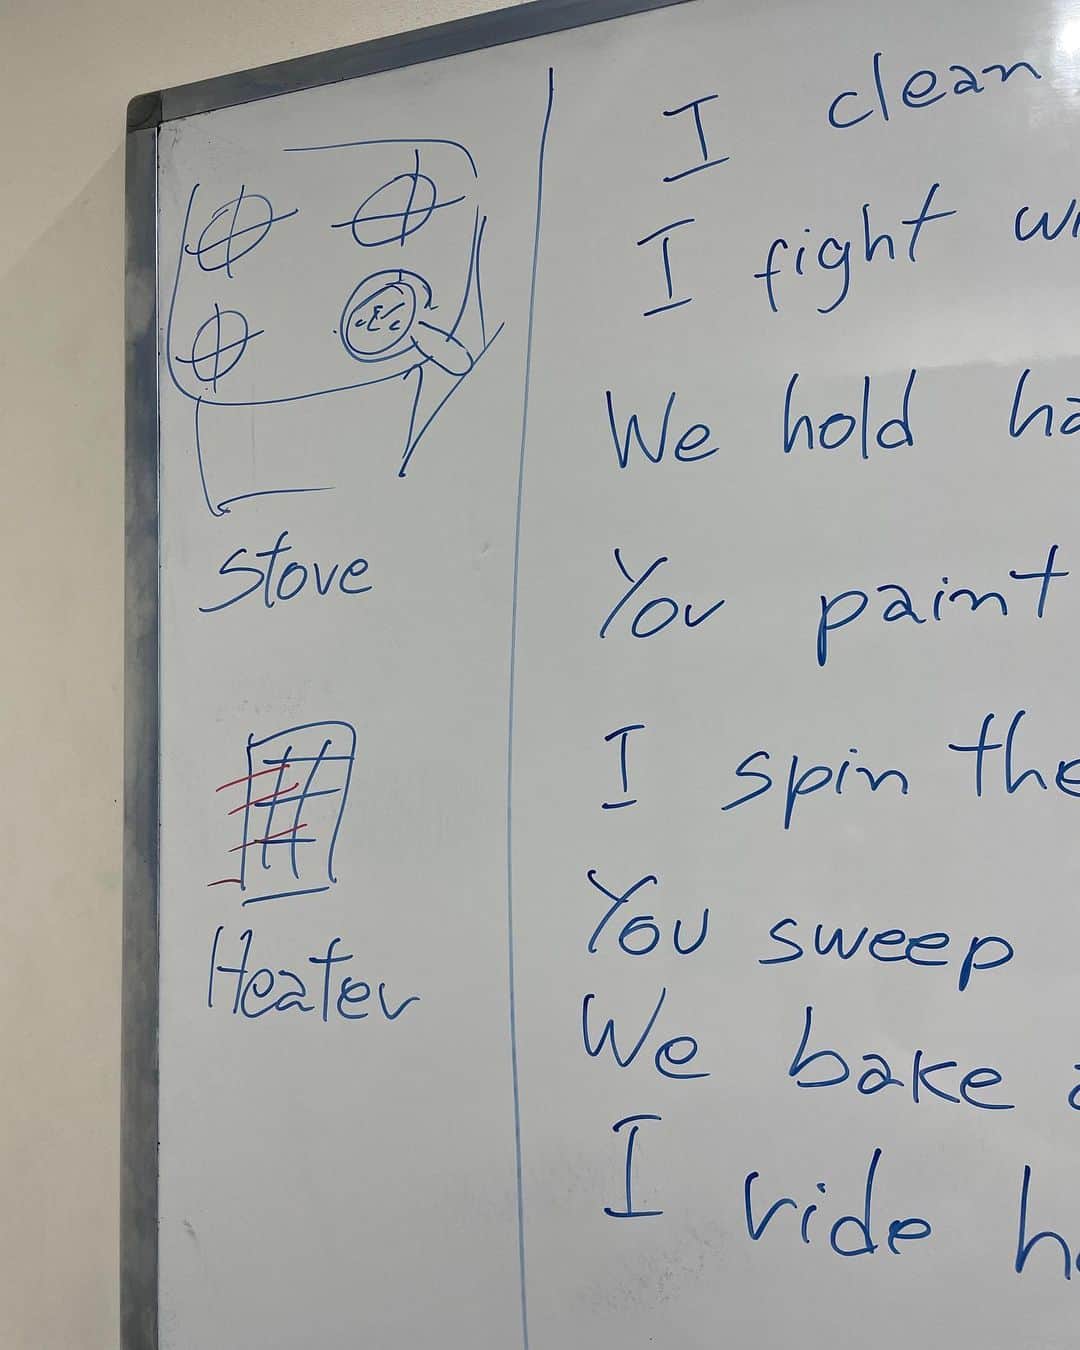 Stove
Heater
I clean
I fight
We hold
You paint
I spin the
You sweep
We bake
I ride